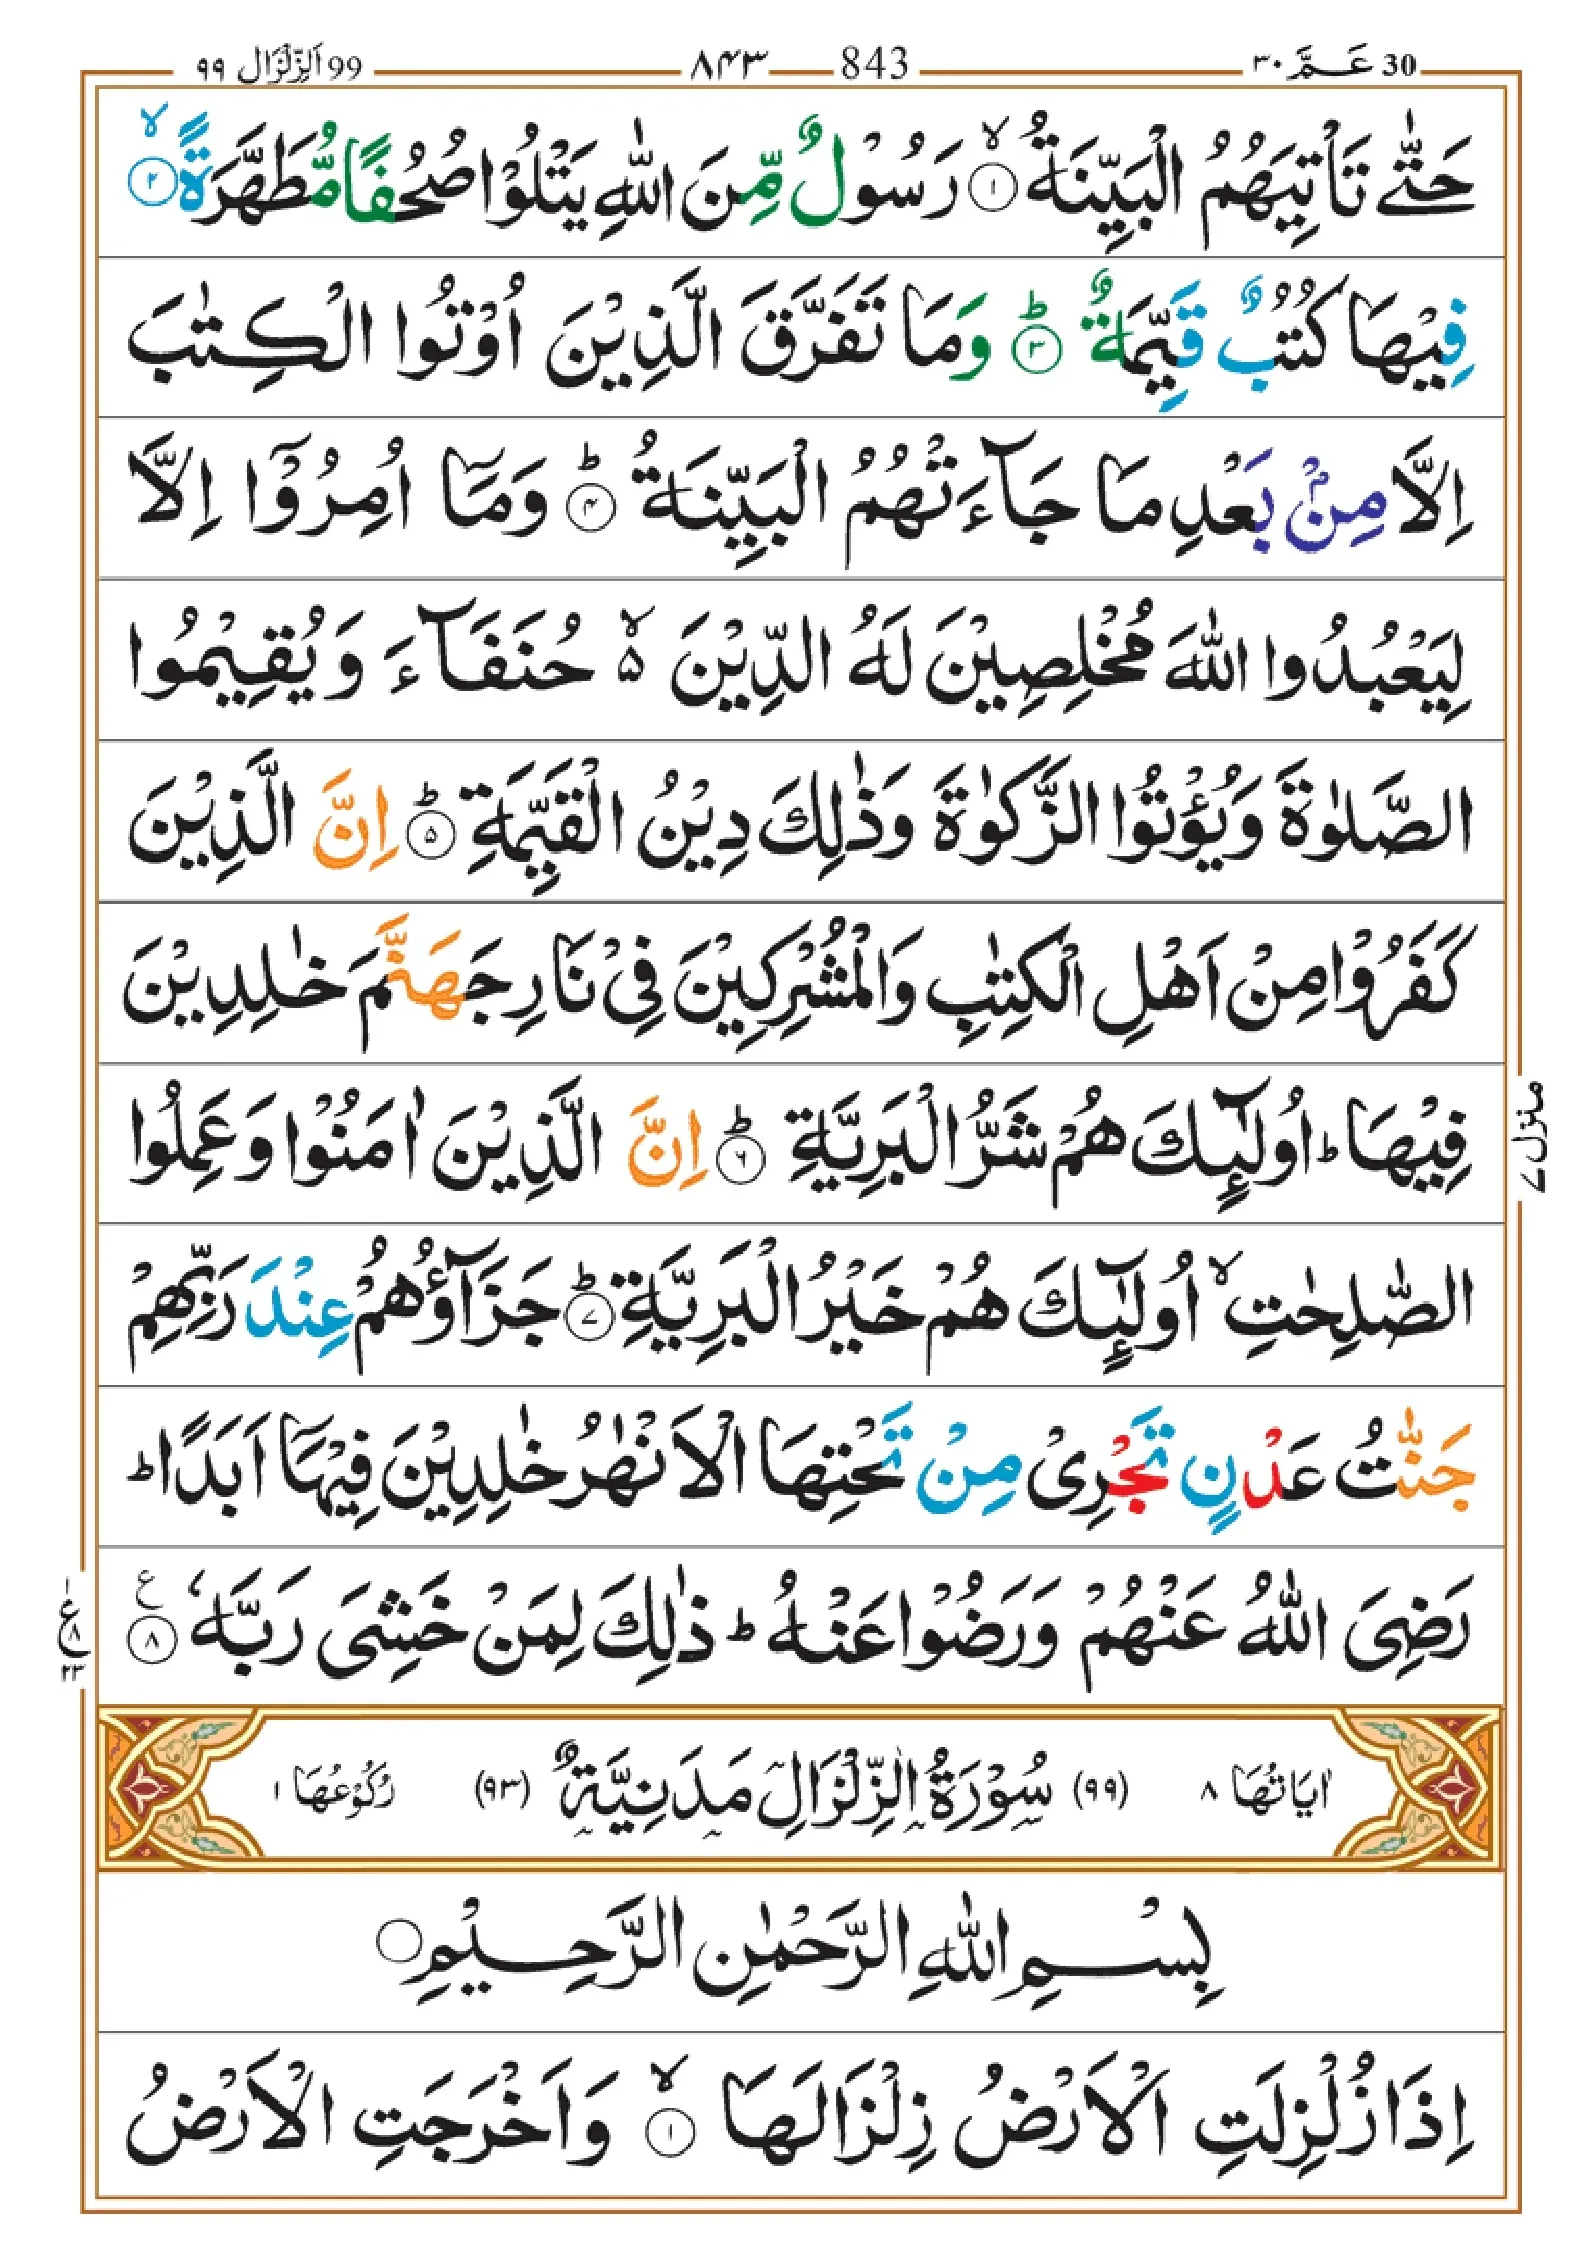 30 عَــمَّ ۳۰ 843 ۸۴۳ 99 اَلزِّلْزَال ۹۹
حَتّٰى تَاْتِيَهُمُ الْبَيِّنَةُ ۙ﴿۱﴾ رَسُوْلٌ مِّنَ اللّٰهِ يَتْلُوْا صُحُفًا مُّطَهَّرَةً ۙ﴿۲﴾
فِيْهَا كُتُبٌ قَيِّمَةٌ ؕ﴿۳﴾ وَمَا تَفَرَّقَ الَّذِيْنَ اُوْتُوا الْكِتٰبَ
اِلَّا مِنْۢ بَعْدِ مَا جَآءَتْهُمُ الْبَيِّنَةُ ؕ﴿۴﴾ وَمَاۤ اُمِرُوْۤا اِلَّا
لِيَعْبُدُوا اللّٰهَ مُخْلِصِيْنَ لَهُ الدِّيْنَ ۵ۙ حُنَفَآءَ وَيُقِيْمُوا
الصَّلٰوةَ وَيُؤْتُوا الزَّكٰوةَ وَذٰلِكَ دِيْنُ الْقَيِّمَةِ ؕ﴿۵﴾ اِنَّ الَّذِيْنَ
كَفَرُوْا مِنْ اَهْلِ الْكِتٰبِ وَالْمُشْرِكِيْنَ فِىْ نَارِ جَهَنَّمَ خٰلِدِيْنَ
فِيْهَا ؕ اُولٰٓئِكَ هُمْ شَرُّ الْبَرِيَّةِ ؕ﴿۶﴾ اِنَّ الَّذِيْنَ اٰمَنُوْا وَعَمِلُوا
الصّٰلِحٰتِ ۙ اُولٰٓئِكَ هُمْ خَيْرُ الْبَرِيَّةِ ؕ﴿۷﴾ جَزَآؤُهُمْ عِنْدَ رَبِّهِمْ
جَنّٰتُ عَدْنٍ تَجْرِىْ مِنْ تَحْتِهَا الْاَنْهٰرُ خٰلِدِيْنَ فِيْهَاۤ اَبَدًا ؕ
رَضِىَ اللّٰهُ عَنْهُمْ وَرَضُوْا عَنْهُ ؕ ذٰلِكَ لِمَنْ خَشِىَ رَبَّهٗ ﴿۸﴾ ع
منزل ۷
۱ ع ۸ ۲۳
اٰيَاتُهَا ۸ (۹۹) سُوْرَةُ الزِّلْزَالِ مَدَنِيَّةٌ (۹۳) رُكُوْعُهَا ۱
بِسْــمِ اللّٰهِ الرَّحْمٰنِ الرَّحِـــيْمِ
اِذَا زُلْزِلَتِ الْاَرْضُ زِلْزَالَهَا ۙ﴿۱﴾ وَاَخْرَجَتِ الْاَرْضُ